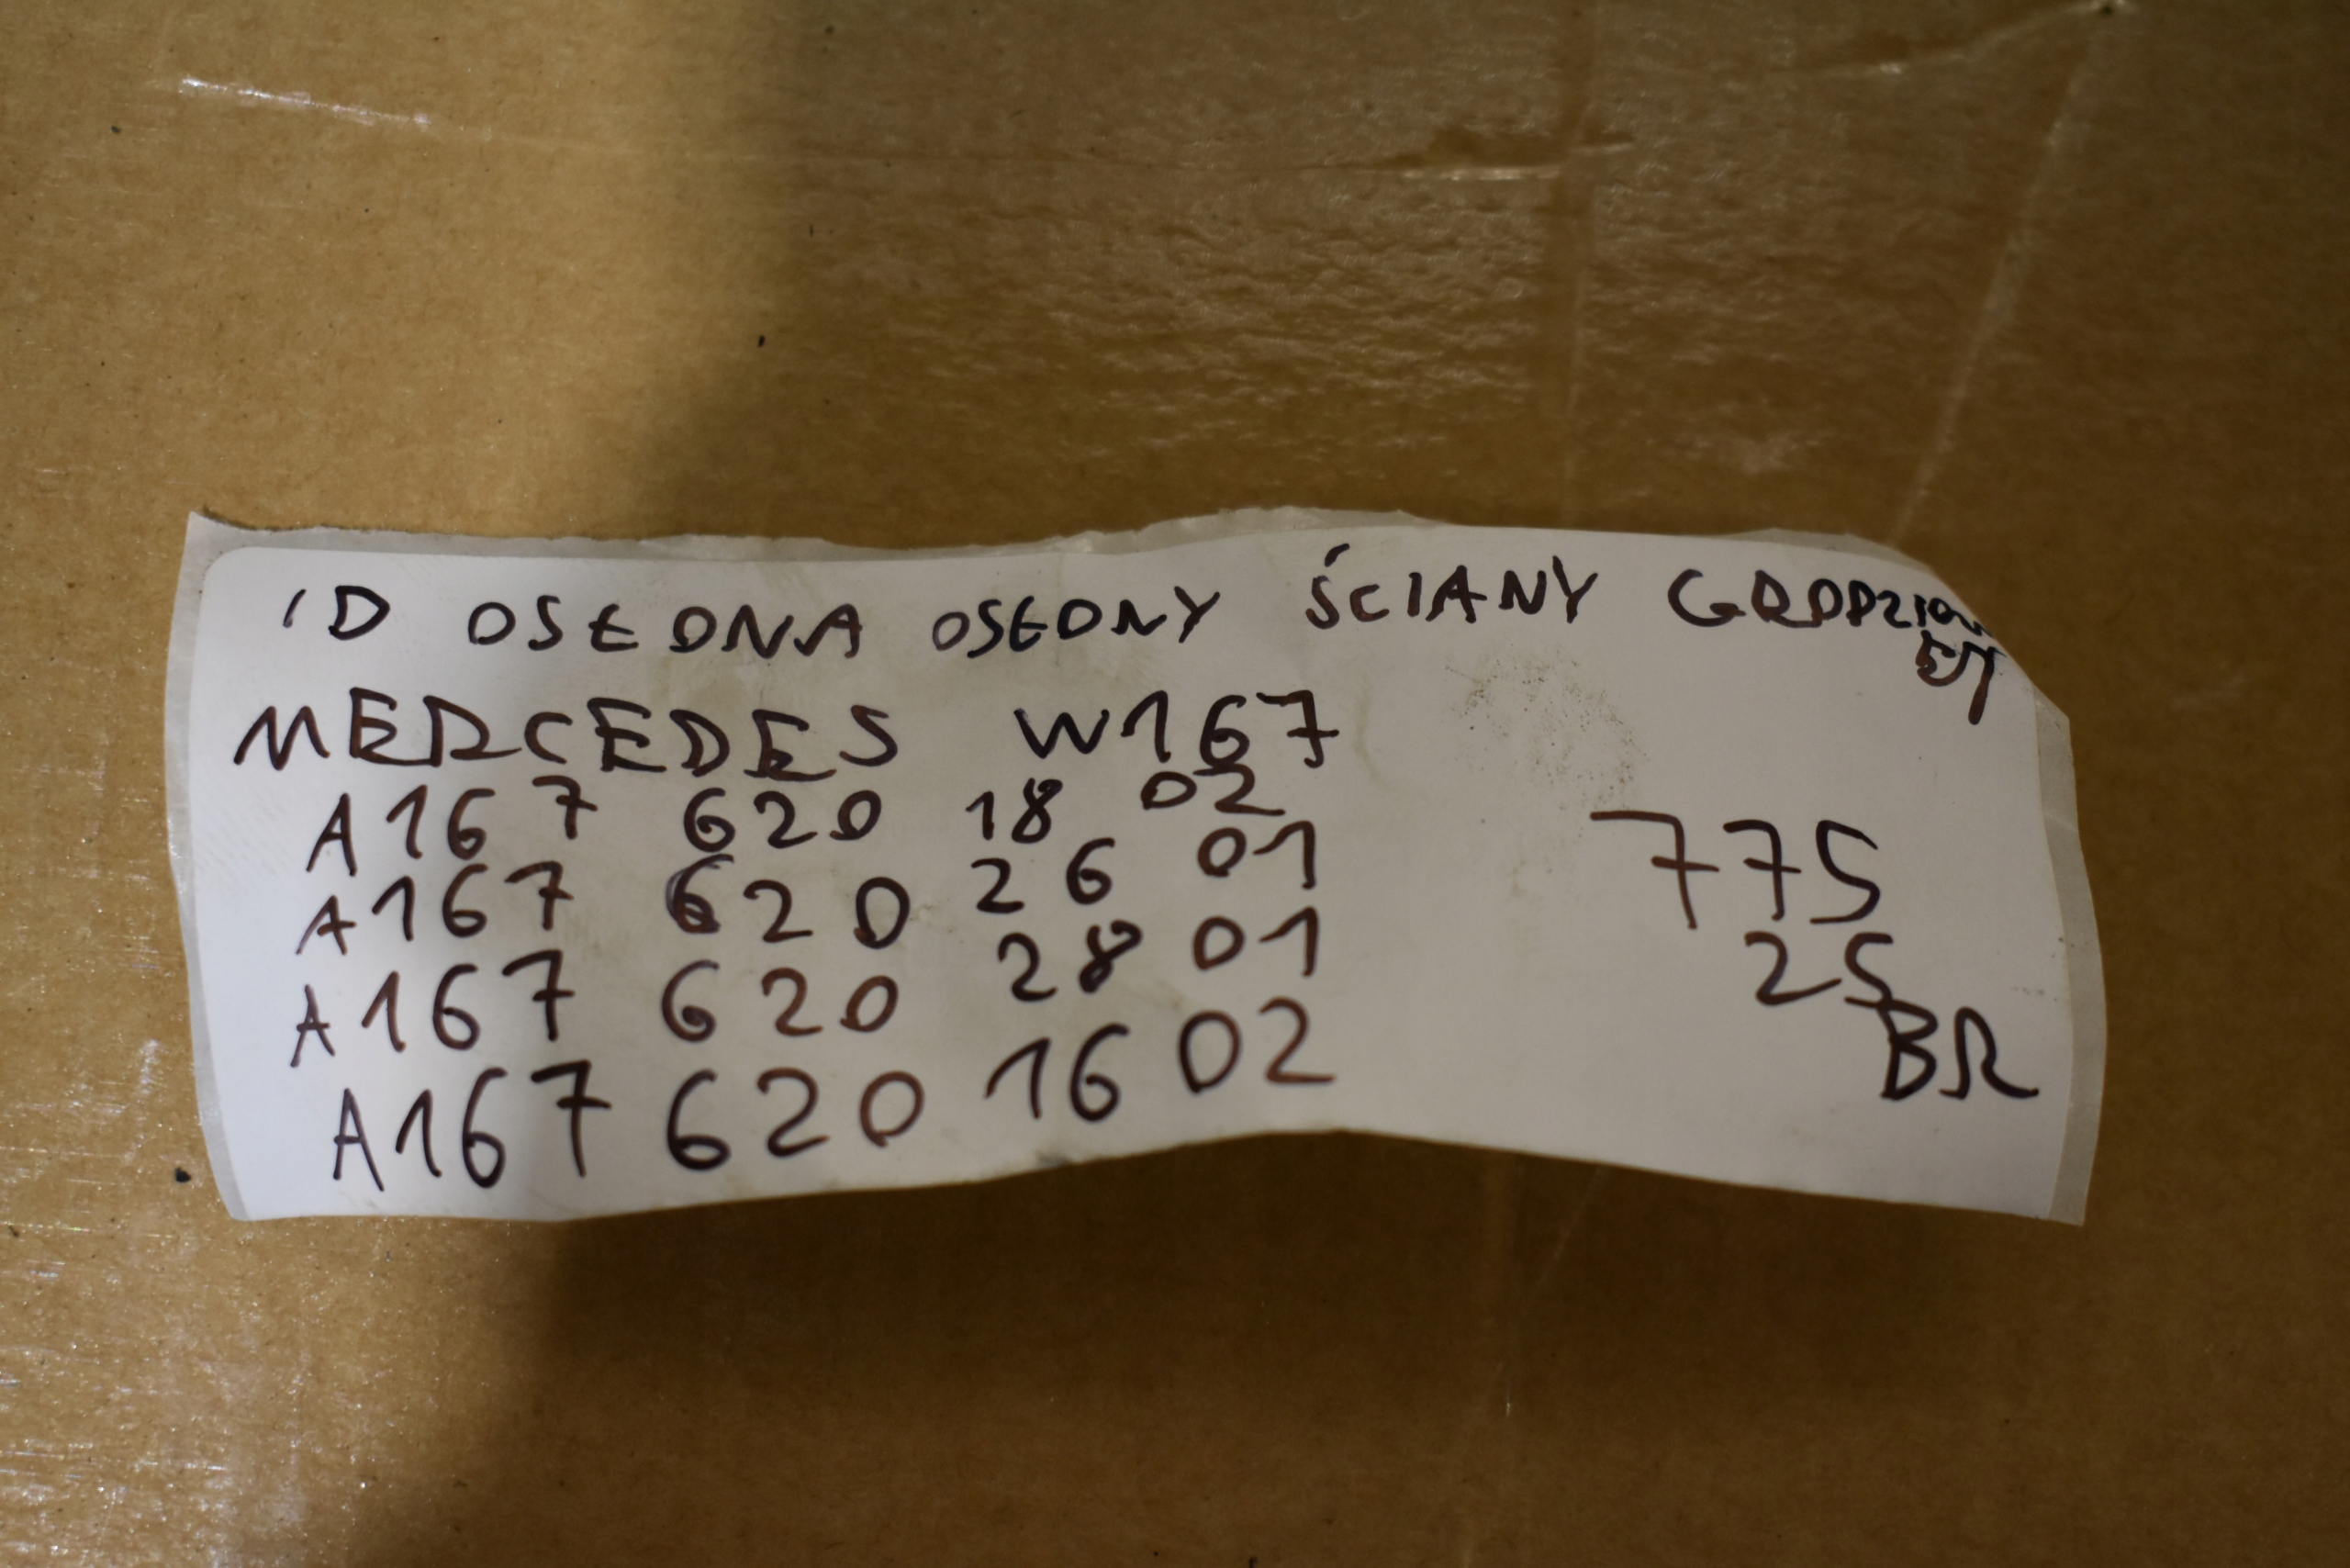 ID OSŁONA OSŁONY ŚCIANY GRODZIOW
EJ
MERCEDES W167
A167 620 18 02
A167 620 26 01
A167 620 28 01
A167 620 16 02
775
25
BR